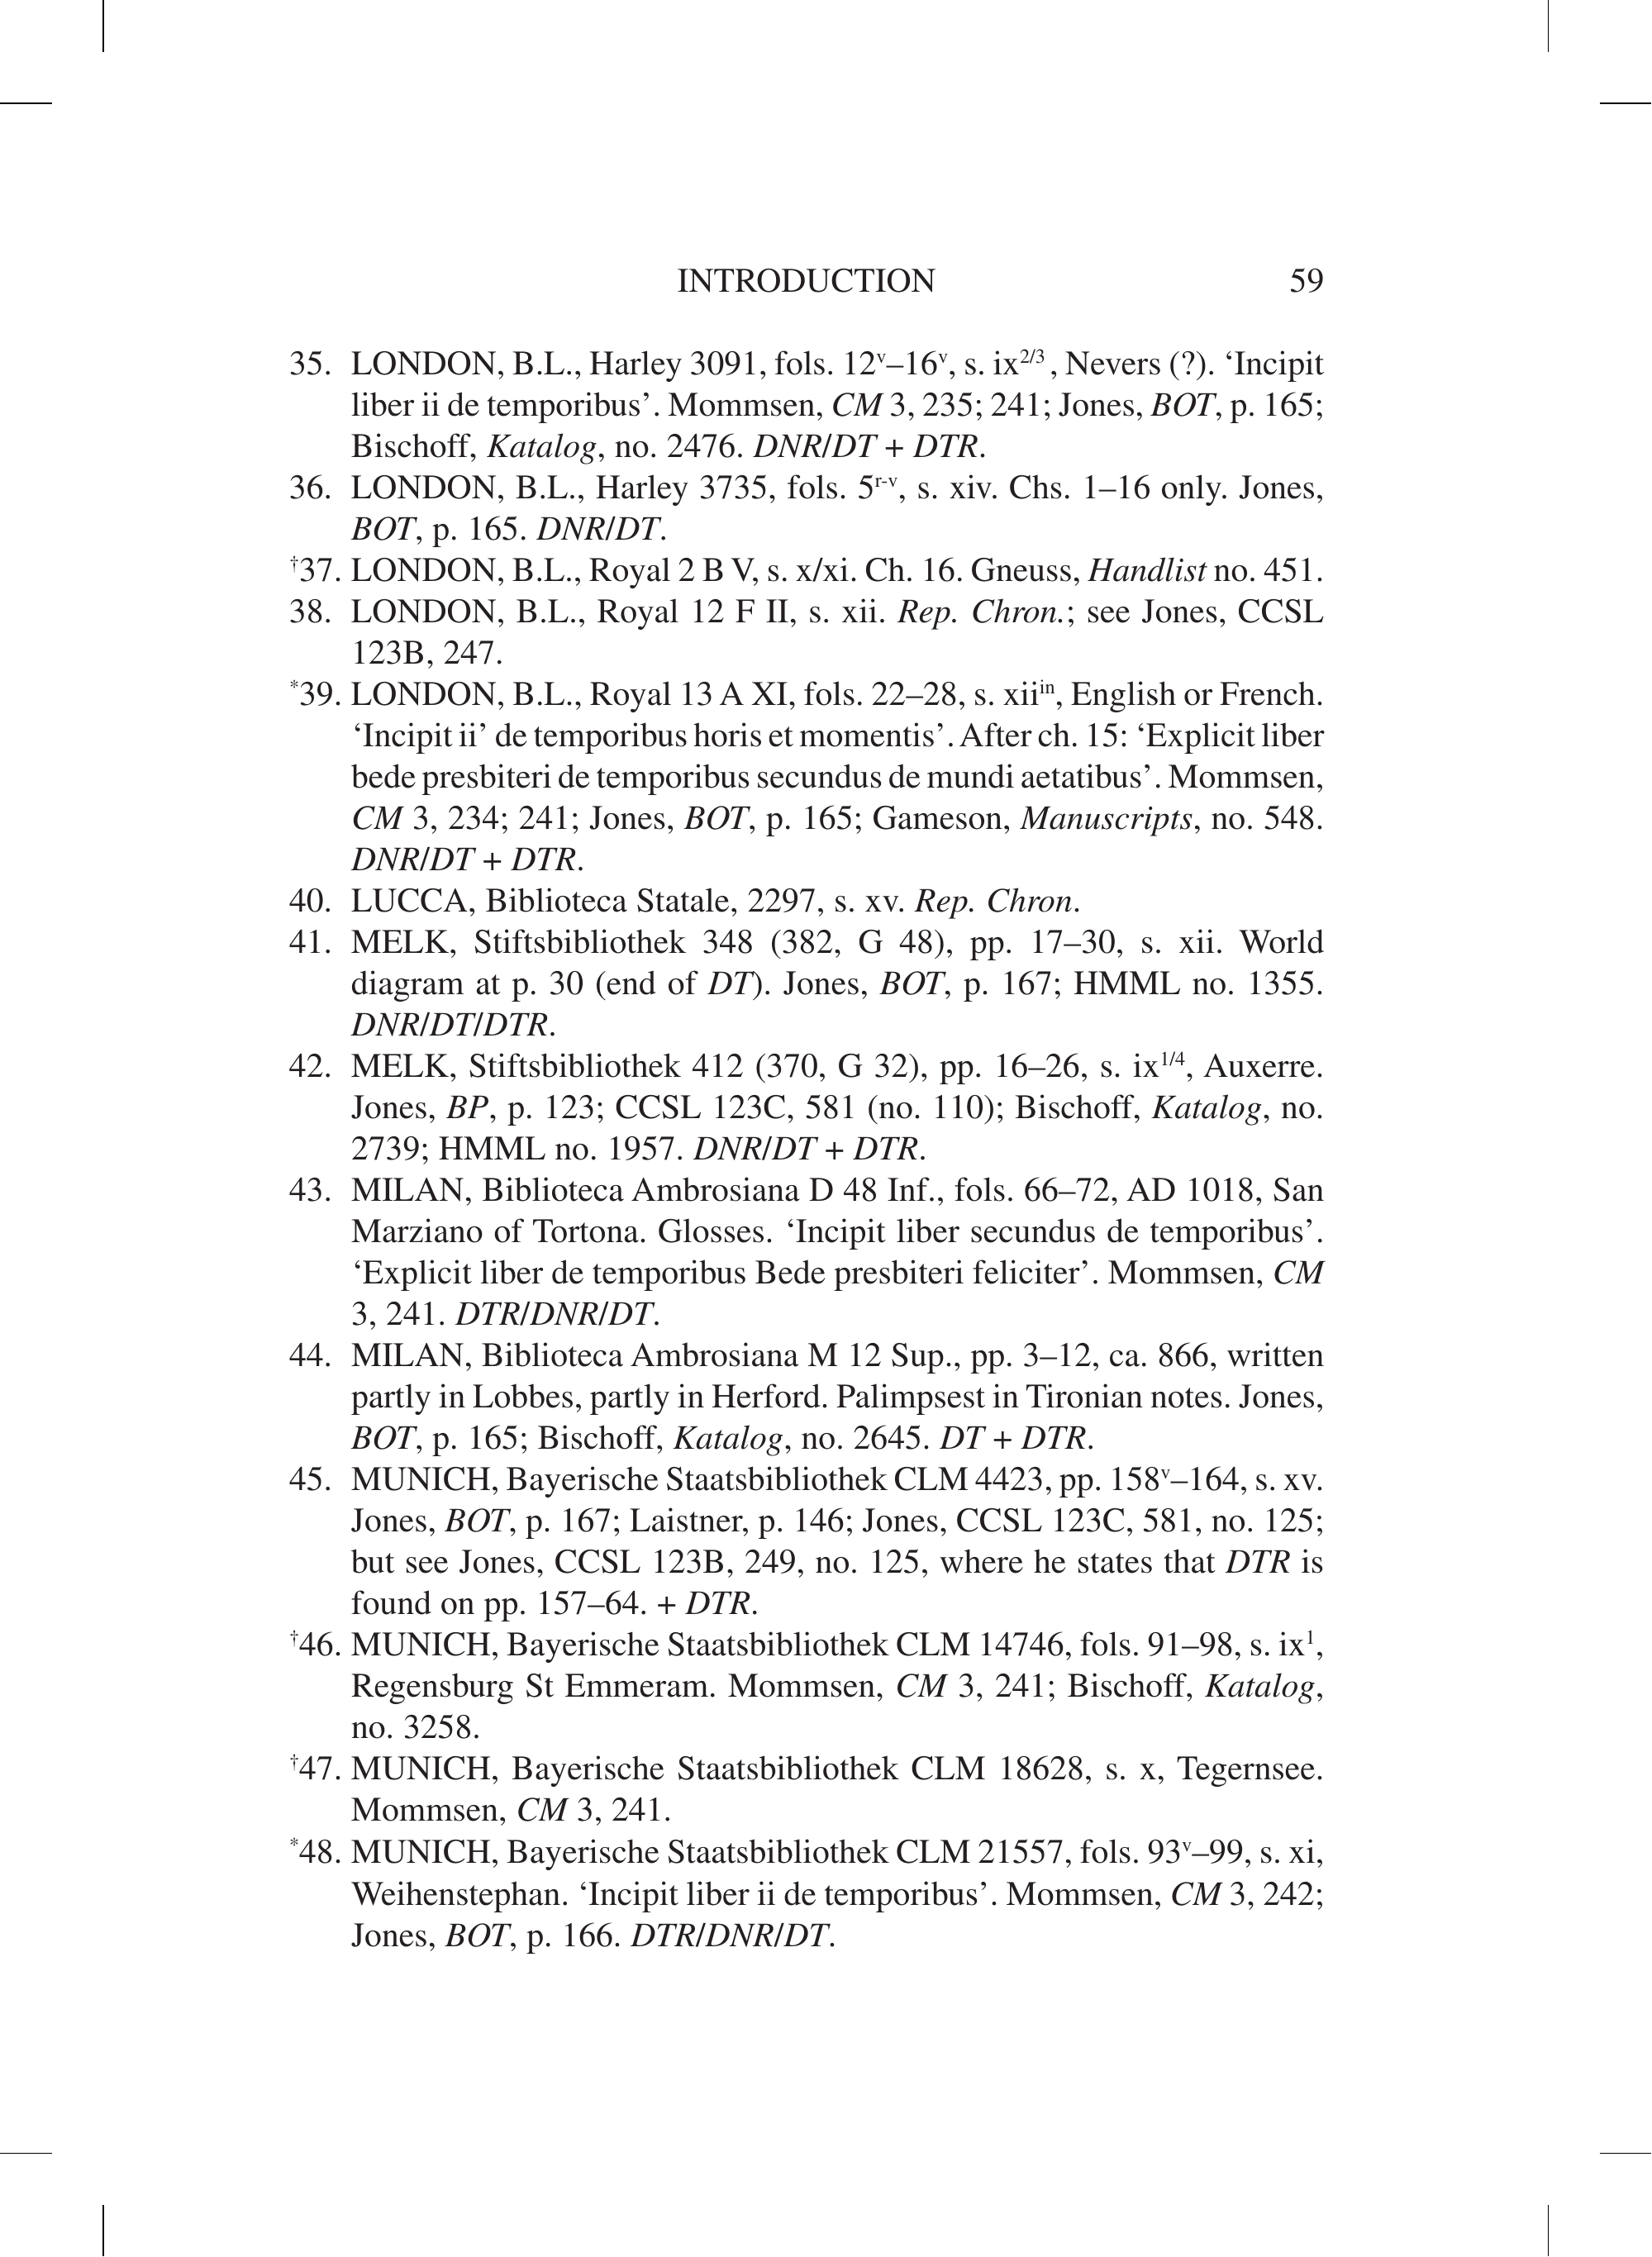 INTRODUCTION 59
35. LONDON, B.L., Harley 3091, fols. 12ᵛ–16ᵛ, s. ix²ᐟ³ , Nevers (?). ‘Incipit
liber ii de temporibus’. Mommsen, CM 3, 235; 241; Jones, BOT, p. 165;
Bischoff, Katalog, no. 2476. DNR/DT + DTR.
36. LONDON, B.L., Harley 3735, fols. 5ʳ⁻ᵛ, s. xiv. Chs. 1–16 only. Jones,
BOT, p. 165. DNR/DT.
†37. LONDON, B.L., Royal 2 B V, s. x/xi. Ch. 16. Gneuss, Handlist no. 451.
38. LONDON, B.L., Royal 12 F II, s. xii. Rep. Chron.; see Jones, CCSL
123B, 247.
*39. LONDON, B.L., Royal 13 A XI, fols. 22–28, s. xiiⁱⁿ, English or French.
‘Incipit ii’ de temporibus horis et momentis’. After ch. 15: ‘Explicit liber
bede presbiteri de temporibus secundus de mundi aetatibus’. Mommsen,
CM 3, 234; 241; Jones, BOT, p. 165; Gameson, Manuscripts, no. 548.
DNR/DT + DTR.
40. LUCCA, Biblioteca Statale, 2297, s. xv. Rep. Chron.
41. MELK, Stiftsbibliothek 348 (382, G 48), pp. 17–30, s. xii. World
diagram at p. 30 (end of DT). Jones, BOT, p. 167; HMML no. 1355.
DNR/DT/DTR.
42. MELK, Stiftsbibliothek 412 (370, G 32), pp. 16–26, s. ix¹ᐟ⁴, Auxerre.
Jones, BP, p. 123; CCSL 123C, 581 (no. 110); Bischoff, Katalog, no.
2739; HMML no. 1957. DNR/DT + DTR.
43. MILAN, Biblioteca Ambrosiana D 48 Inf., fols. 66–72, AD 1018, San
Marziano of Tortona. Glosses. ‘Incipit liber secundus de temporibus’.
‘Explicit liber de temporibus Bede presbiteri feliciter’. Mommsen, CM
3, 241. DTR/DNR/DT.
44. MILAN, Biblioteca Ambrosiana M 12 Sup., pp. 3–12, ca. 866, written
partly in Lobbes, partly in Herford. Palimpsest in Tironian notes. Jones,
BOT, p. 165; Bischoff, Katalog, no. 2645. DT + DTR.
45. MUNICH, Bayerische Staatsbibliothek CLM 4423, pp. 158ᵛ–164, s. xv.
Jones, BOT, p. 167; Laistner, p. 146; Jones, CCSL 123C, 581, no. 125;
but see Jones, CCSL 123B, 249, no. 125, where he states that DTR is
found on pp. 157–64. + DTR.
†46. MUNICH, Bayerische Staatsbibliothek CLM 14746, fols. 91–98, s. ix¹,
Regensburg St Emmeram. Mommsen, CM 3, 241; Bischoff, Katalog,
no. 3258.
†47. MUNICH, Bayerische Staatsbibliothek CLM 18628, s. x, Tegernsee.
Mommsen, CM 3, 241.
*48. MUNICH, Bayerische Staatsbibliothek CLM 21557, fols. 93ᵛ–99, s. xi,
Weihenstephan. ‘Incipit liber ii de temporibus’. Mommsen, CM 3, 242;
Jones, BOT, p. 166. DTR/DNR/DT.